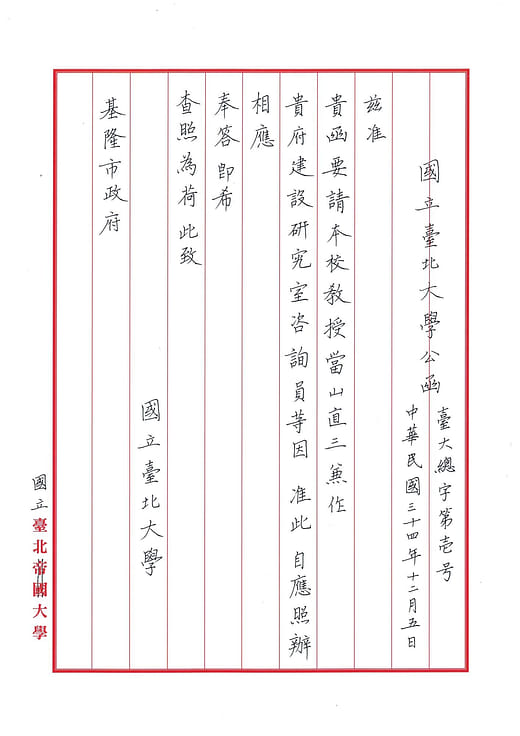 國立臺北大學公函
臺大總字第壱号
中華民國三十四年十二月五日
茲准
貴函要請本校教授當山直三兼作
貴府建設研究室咨詢員等因 准此 自應照辦
相應
奉答 即希
查照為荷 此致
國立臺北大學
基隆市政府
國立臺北帝國大學